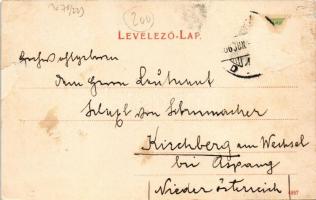 (200)
LEVELEZŐ-LAP.
Hochwohlgeboren
dem Herrn Leutnant
von Schumacher
Kirchberg am Wechsel
bei Aspang
Nieder österreich